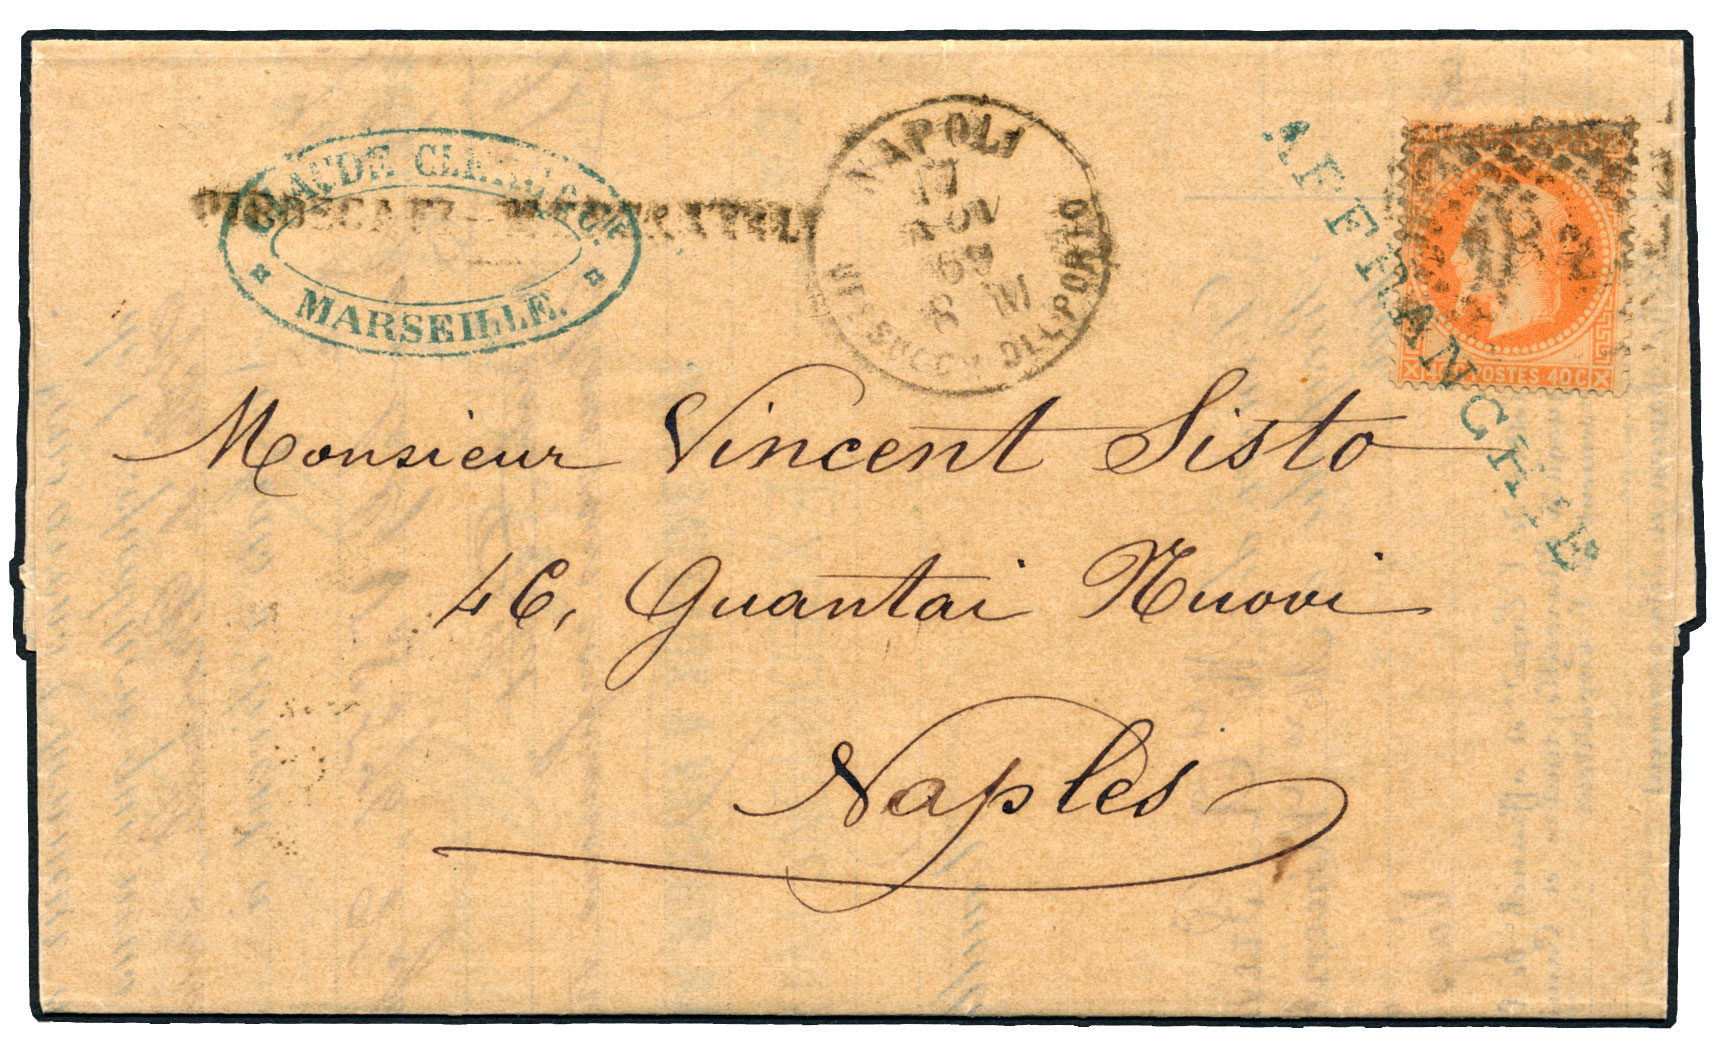 CLAUDE
MARSEILLE.
PIROSCAFI
NAPOLI
17
NOV
69
8 M
PORTO
AFFRANCHIE
POSTES 40 C
Monsieur Vincent Sisto
46, Guantai Nuovi
Naples